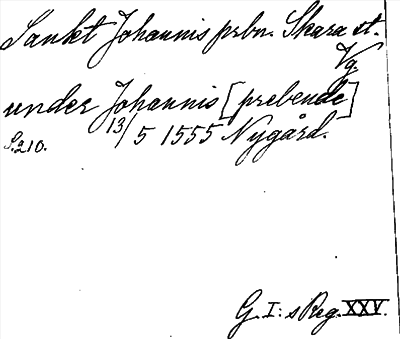 Sankt Johannis prbn. Skara st.
Vg.
under Johannis [prebende]
S.210. 13/5 1555 Nygård.
G. I: s Reg. XXV.